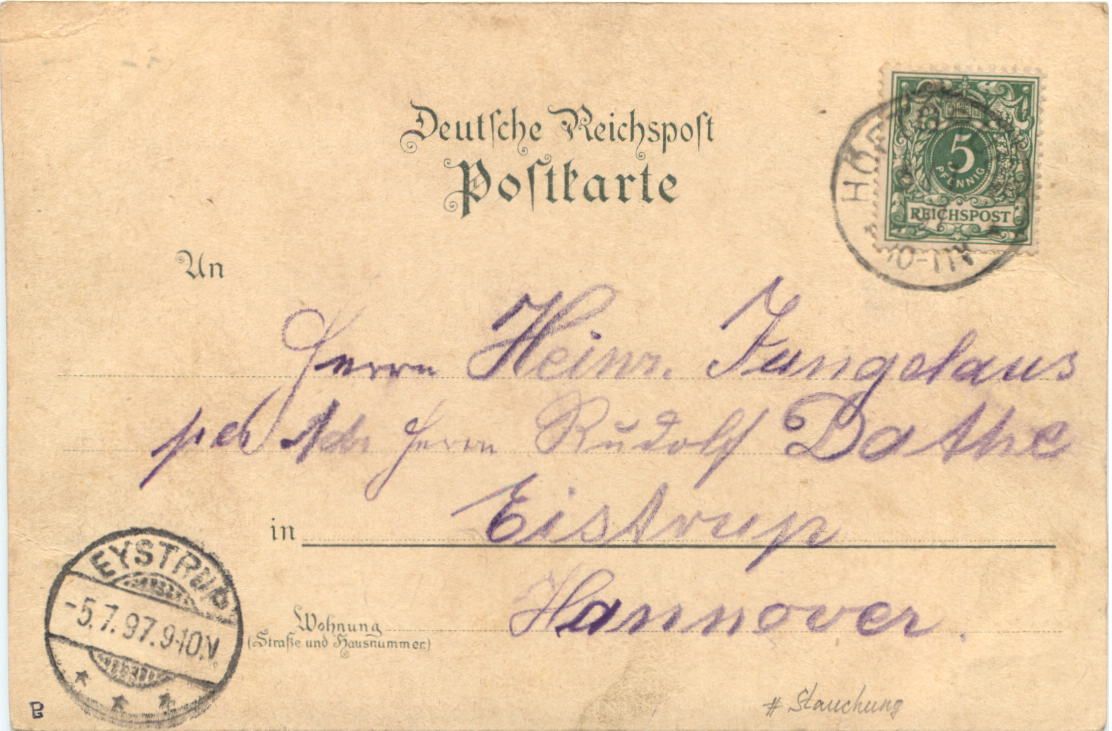 Deutsche Reichspost
Postkarte
5
PFENNIG
REICHSPOST
An
Herrn Heinr. Jungclaus
per Adr Herrn Rudolf Dathe
in Eistrup
Hannover.
Wohnung
(Straße und Hausnummer)
EYSTRUP
-5.7.97.9-10.V
# Stauchung